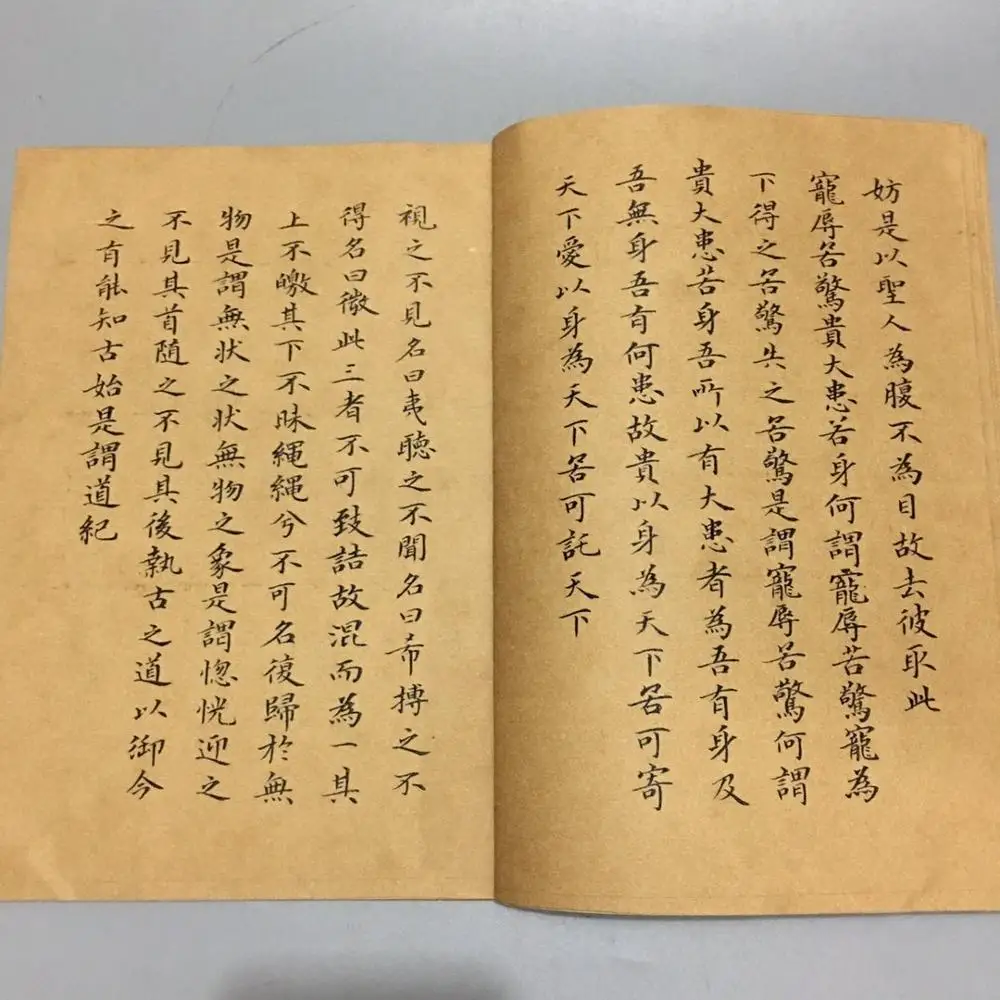 妨是以聖人為腹不為目故去彼取此
寵辱若驚貴大患若身何謂寵辱若驚寵為
下得之若驚失之若驚是謂寵辱若驚何謂
貴大患若身吾所以有大患者為吾有身及
吾無身吾有何患故貴以身為天下若可寄
天下愛以身為天下若可託天下
視之不見名曰夷聽之不聞名曰希搏之不
得名曰微此三者不可致詰故混而為一其
上不皦其下不昧繩繩兮不可名復歸於無
物是謂無状之状無物之象是謂惚恍迎之
不見其首隨之不見其後執古之道以御今
之有能知古始是謂道紀